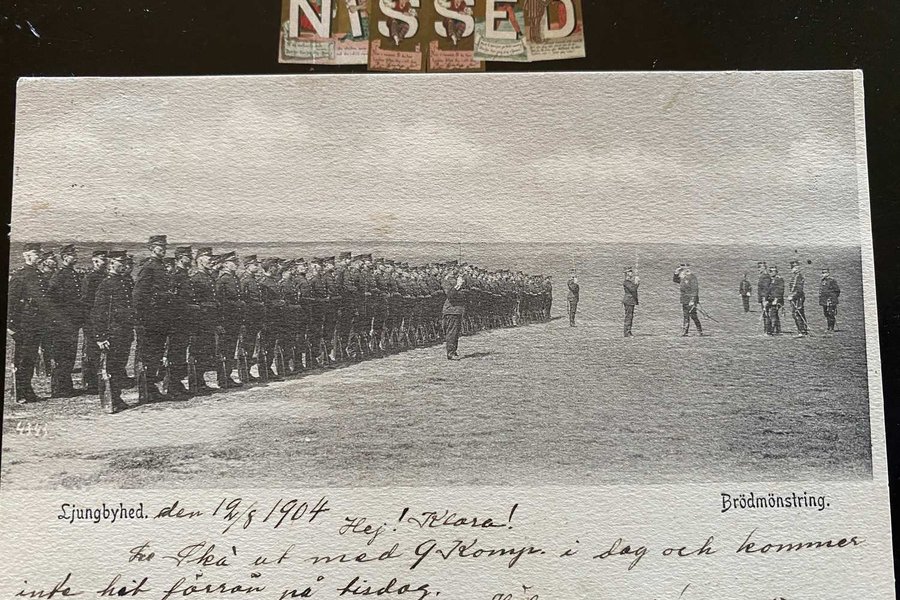 NISSED
4343
Ljungbyhed. den 19/8 1904 Hej! Klara! Brödmönstring.
ut med 9 Komp. i dag och kommer
inte hit förrän på tisdag.